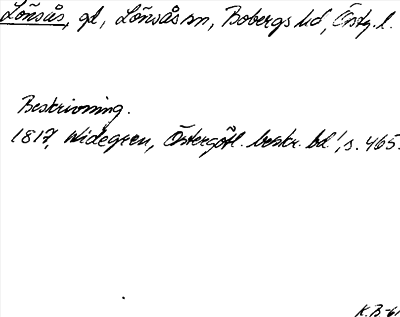 Lönsås, gl, Lönsås sn, Bobergs hd, Östg. l.
Beskrivning.
1817, Widegren, Östergötl. beskr. bd 1, s. 465.
K.B-61